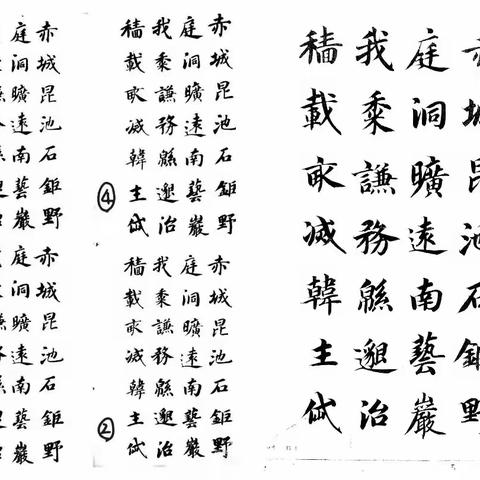 赤城昆池石鉅野
庭洞曠遠南藝巖
赤城昆池石鉅野
庭洞曠遠南藝巖
赤城昆池石鉅野
庭洞曠遠南藝巖
我黍謙務緜邈治
穡載滅韓主岱
④
赤城昆池石鉅野
庭洞曠遠南藝巖
我黍謙務緜邈治
穡載滅韓主岱
②
赤城昆池石鉅野
庭洞曠遠南藝巖
我黍謙務緜邈治
穡載滅韓主岱